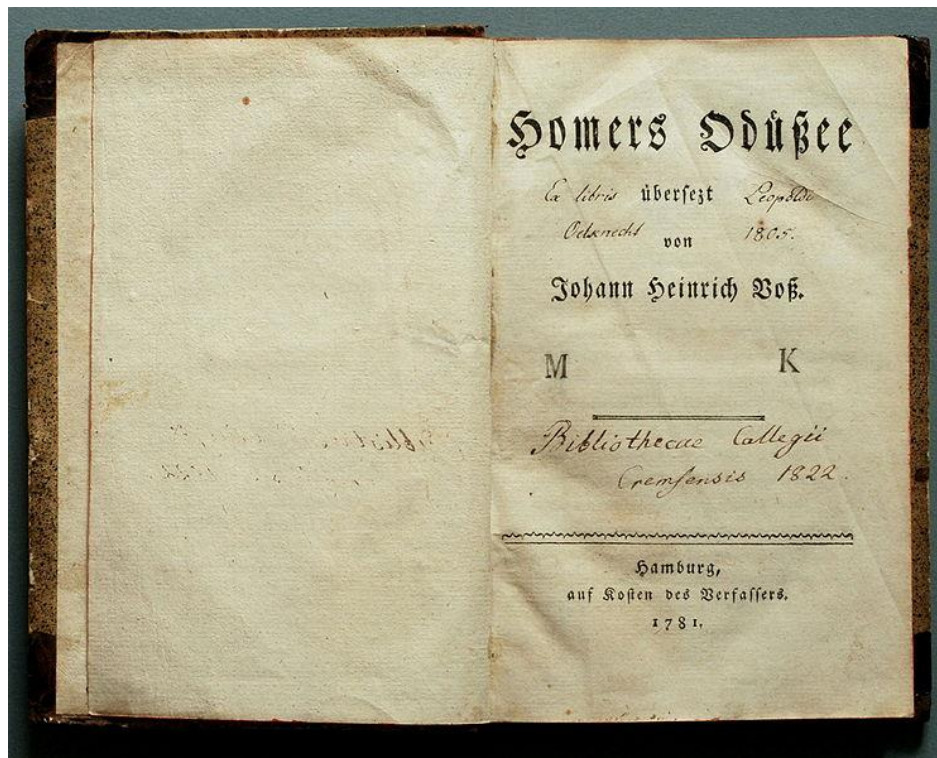 Homers Odüßee
Ex libris übersezt Leopoldi
Oelknecht von 1805.
Johann Heinrich Voß.
M K
Bibliothecae Collegii
Cremsensis 1822.
Hamburg,
auf Kosten des Verfassers.
1781.